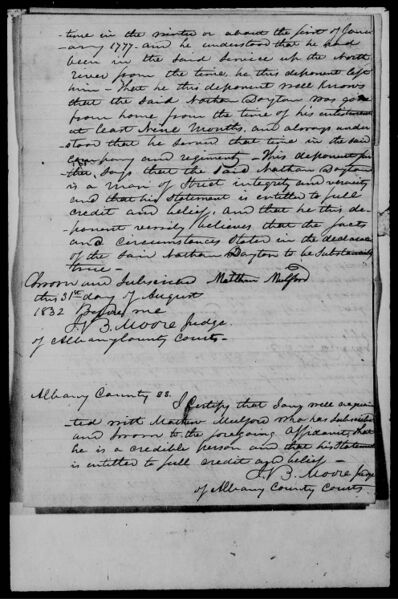 time in the winter or about the first of Janu
-ary 1777. and he understood that he had
been in the said service up the North
river from the time he this deponent left
him - That he this deponent well knows
that the said Nathan Dayton was gone
from home from the time of his entistment
at least Nine Months, and always under
stood that he served that time in the said
company and regiment - This deponent fur
ther says that the said Nathan Dayton
is a man of Strict integrity and veracity
and that his statement is entitled to full
credit and belief, and that he this de-
ponent verily believes that the facts
and circumstances stated in the declara
of the said Nathan Dayton to be substantially
true -
Sworn and Subscribed Mathew Mulford
this 31st day of August
1832 Before me
J. B. Moore Judge
of Albany County Courts -
Albany County ss.
I Certify that I am well acquain
ted with Mathew Mulford who has subscribed
and sworn to the foregoing Affidavit, that
he is a credible person and that his Statement
is entitled to full credit and belief -
J. B. Moore Judge
of Albany County Courts